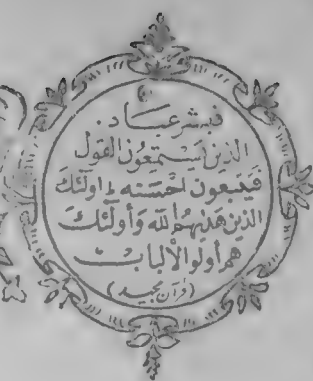 فبشر عباد.
الذين يستمعون القول
فيتبعون احسنه اولئك
الذين هديهم الله وأولئك
هم أولوا الألباب
(قرآن مجيد)